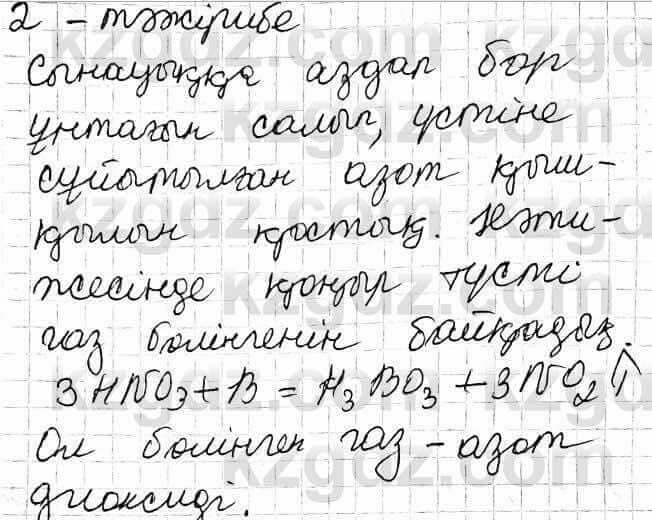 2 - тәжірибе
Сынауыққа аздап бор
ұнтағын салып, үстіне
сұйытылған азот қыш-
қылын қостық. Нәти-
жесінде қоңыр түсті
газ бөлінгенін байқадық.
3HNO₃ + B = H₃BO₃ + 3NO₂↑
Ол бөлінген газ - азот
диоксиді.